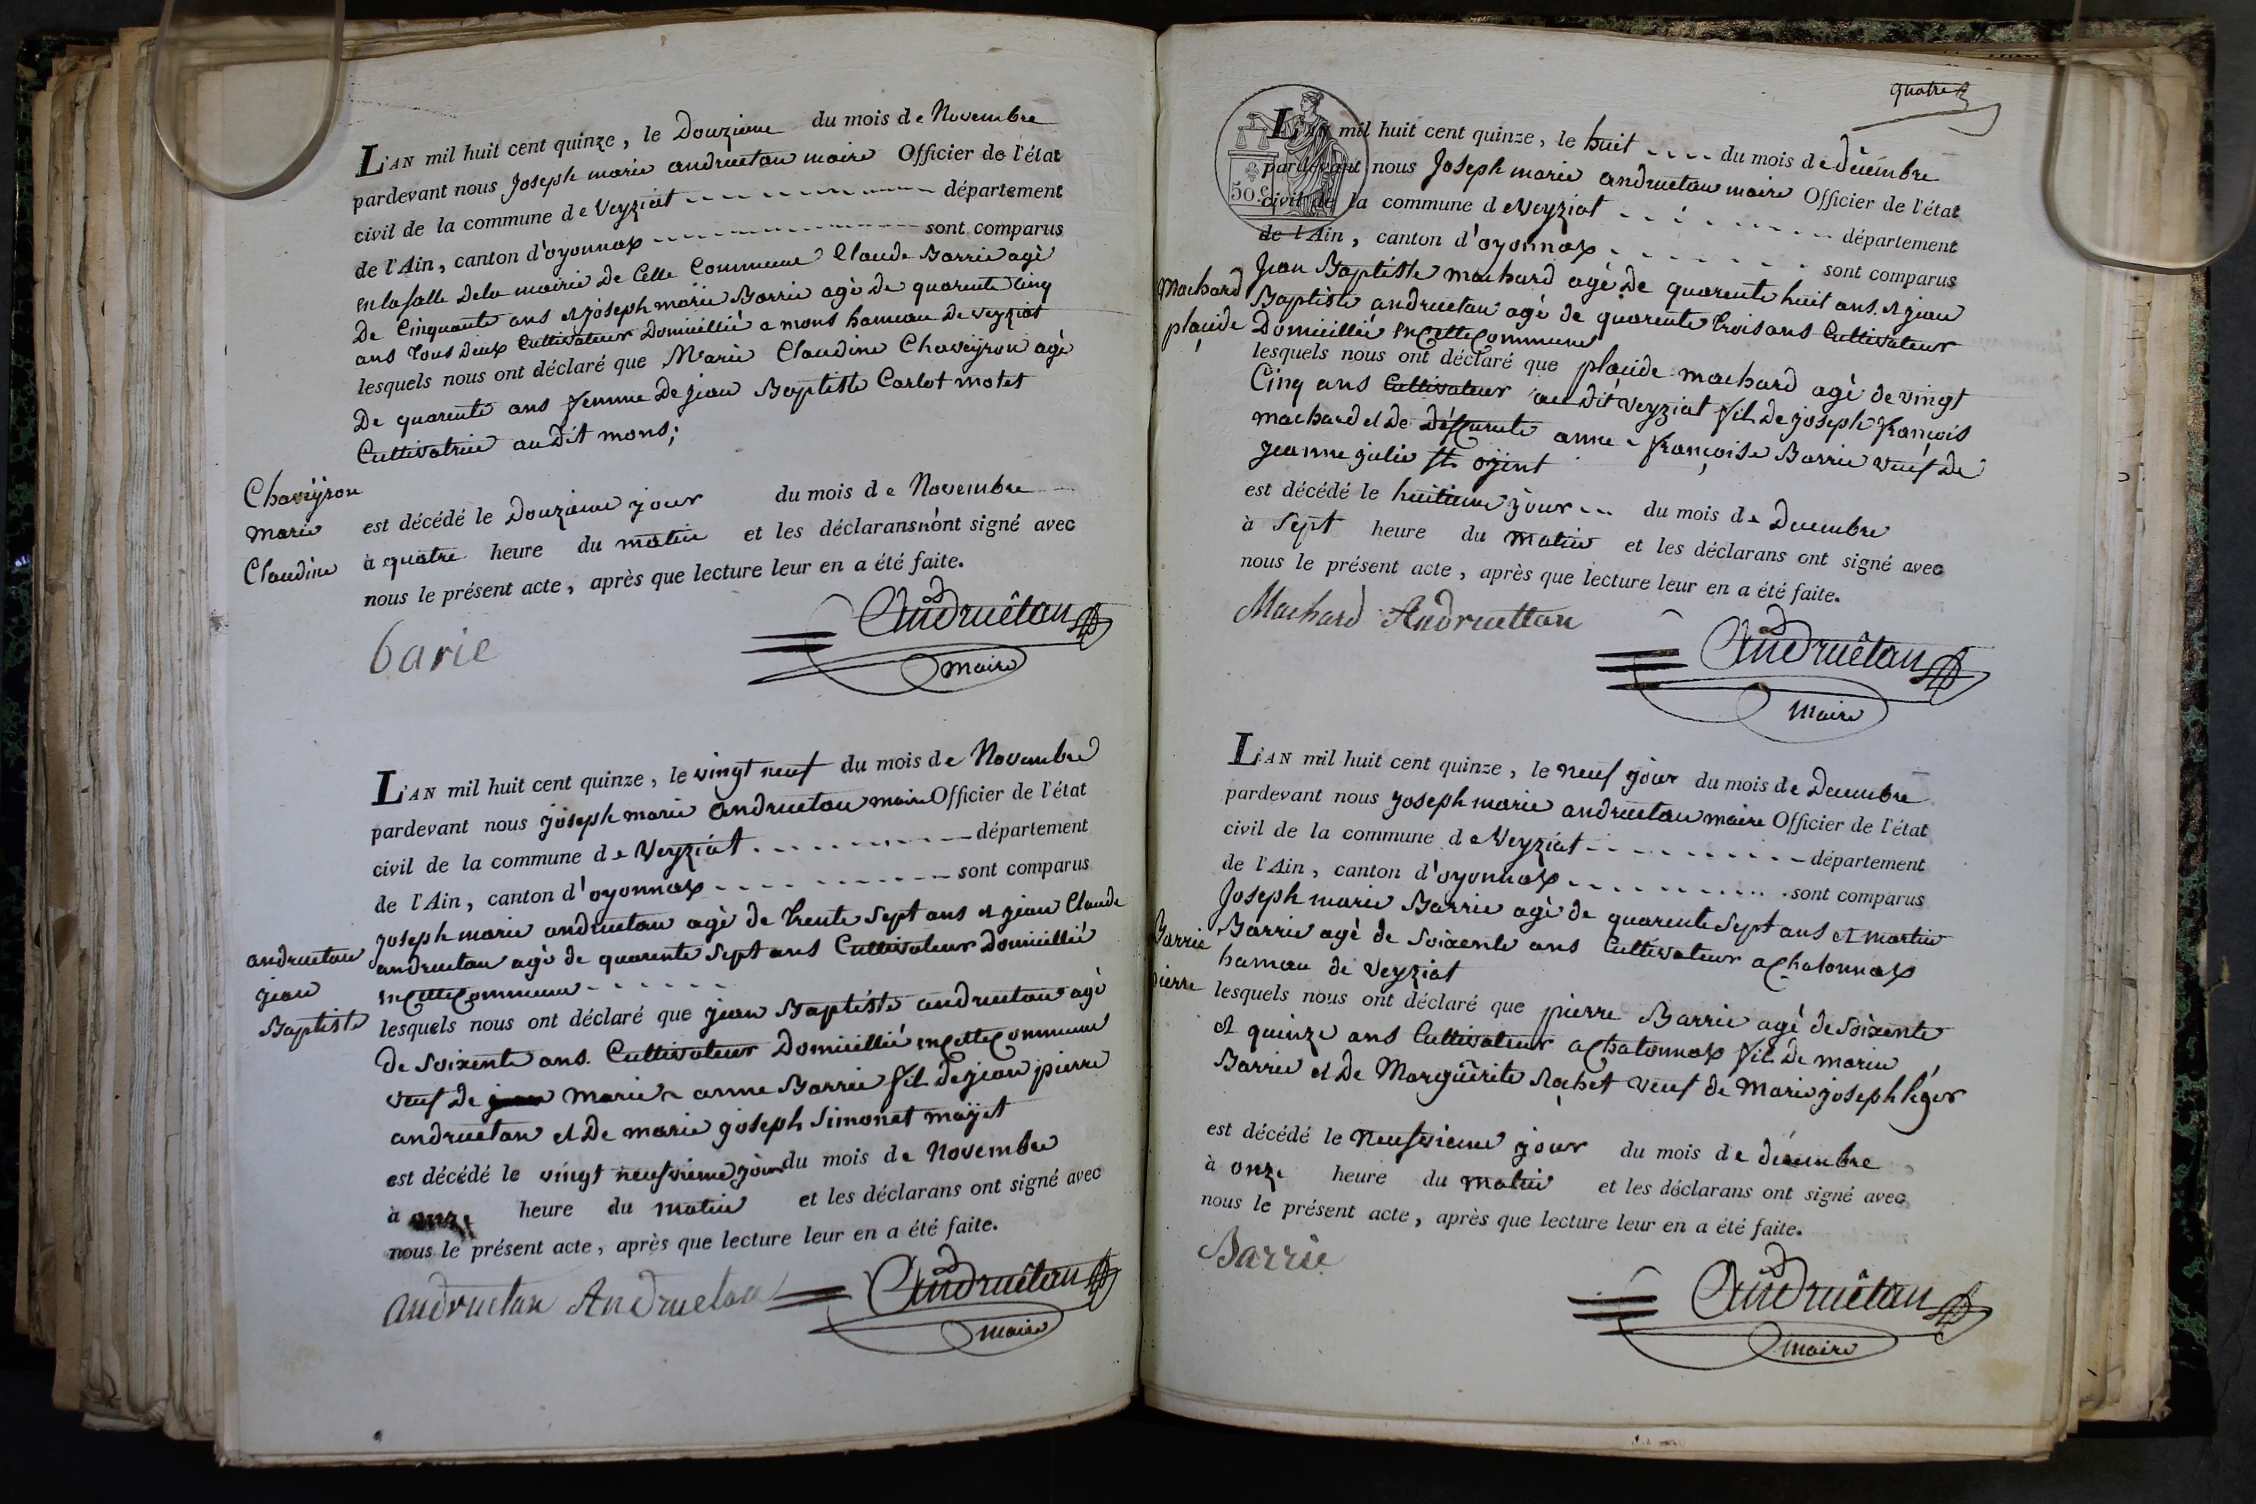 L'AN mil huit cent quinze, le Douzieme du mois de Novembre
pardevant nous Joseph marie andruetan maire Officier de l'état
civil de la commune de Veyziat département
de l'Ain, canton d'oyonnax sont comparus
en la salle De la mairie de Cette Commune Claude Barrie agé
De Cinquante ans et joseph marie Barrie agé De quarente Cinq
ans tous deux Cultivateur Domicillié a mons hameau De veyziat
lesquels nous ont déclaré que Marie Claudine Chaveyron agé
De quarente ans femme De jean Baptiste Carlot motet
Cultivatrice au Dit mons;
Chaveyron
marie
Claudine
est décédé le Douzieme jour du mois de Novembre
à quatre heure du matin et les déclarans n'ont signé avec
nous le présent acte, après que lecture leur en a été faite.
barie Andruêtan
maire
L'AN mil huit cent quinze, le vingt neuf du mois de Novembre
pardevant nous joseph marie andruetan maire Officier de l'état
civil de la commune de Veyziat département
de l'Ain, canton d'oyonnax sont comparus
joseph marie andruetan agé de trente sept ans et jean Claude
andruetan agé de quarente sept ans Cultivateur Domicillié
en Cette Commune
andruetan
jean
Baptiste
lesquels nous ont déclaré que jean Baptiste andruetan agé
de soixente ans. Cultivateur Domicillié en Cette Commune
veuf De marie anne Barrie fil De jean pierre
andruetan et De marie joseph Simonet mayet
est décédé le vingt neufvieme jour du mois de Novembre
à onze heure du matin et les déclarans ont signé avec
nous le présent acte, après que lecture leur en a été faite.
andruetan Andruetan Andruêtan
maire
quatre
50 c
L'AN mil huit cent quinze, le huit du mois de décembre
pardevant nous Joseph marie andruetan maire Officier de l'état
civil de la commune de Veyziat département
de l'Ain, canton d'oyonnax sont comparus
Jean Baptiste machard agé De quarente huit ans et jean
Baptiste andruetan agé de quarente trois ans Cultivateur
Domicillié en Cette Commune
machard
placide
lesquels nous ont déclaré que placide machard agé de vingt
Cinq ans Cultivateur au dit veyziat fil De joseph françois
machard et De déffunte anne françoise Barrie veuf De
jeanne julie St. oyent
est décédé le huitieme jour du mois de Decembre
à sept heure du matin et les déclarans ont signé avec
nous le présent acte, après que lecture leur en a été faite.
Machard Andruettan Andruêtan
Maire
L'AN mil huit cent quinze, le neuf jour du mois de Decembre
pardevant nous joseph marie andruetan maire Officier de l'état
civil de la commune de Veyziat département
de l'Ain, canton d'oyonnax sont comparus
Joseph marie Barrie agé de quarente sept ans et martin
Barrie agé de soixente ans Cultivateur a Chatonnax
hameau de veyziat
Barrie
pierre
lesquels nous ont déclaré que pierre Barrie agé de soixente
et quinze ans Cultivateur a Chatonnax fil De
Barrie et De Margüerite Rochet veuf de Marie joseph léger
est décédé le neufvieme jour du mois de décembre
à onze heure du matin et les déclarans ont signé avec
nous le présent acte, après que lecture leur en a été faite.
Barrie Andruêtan
maire